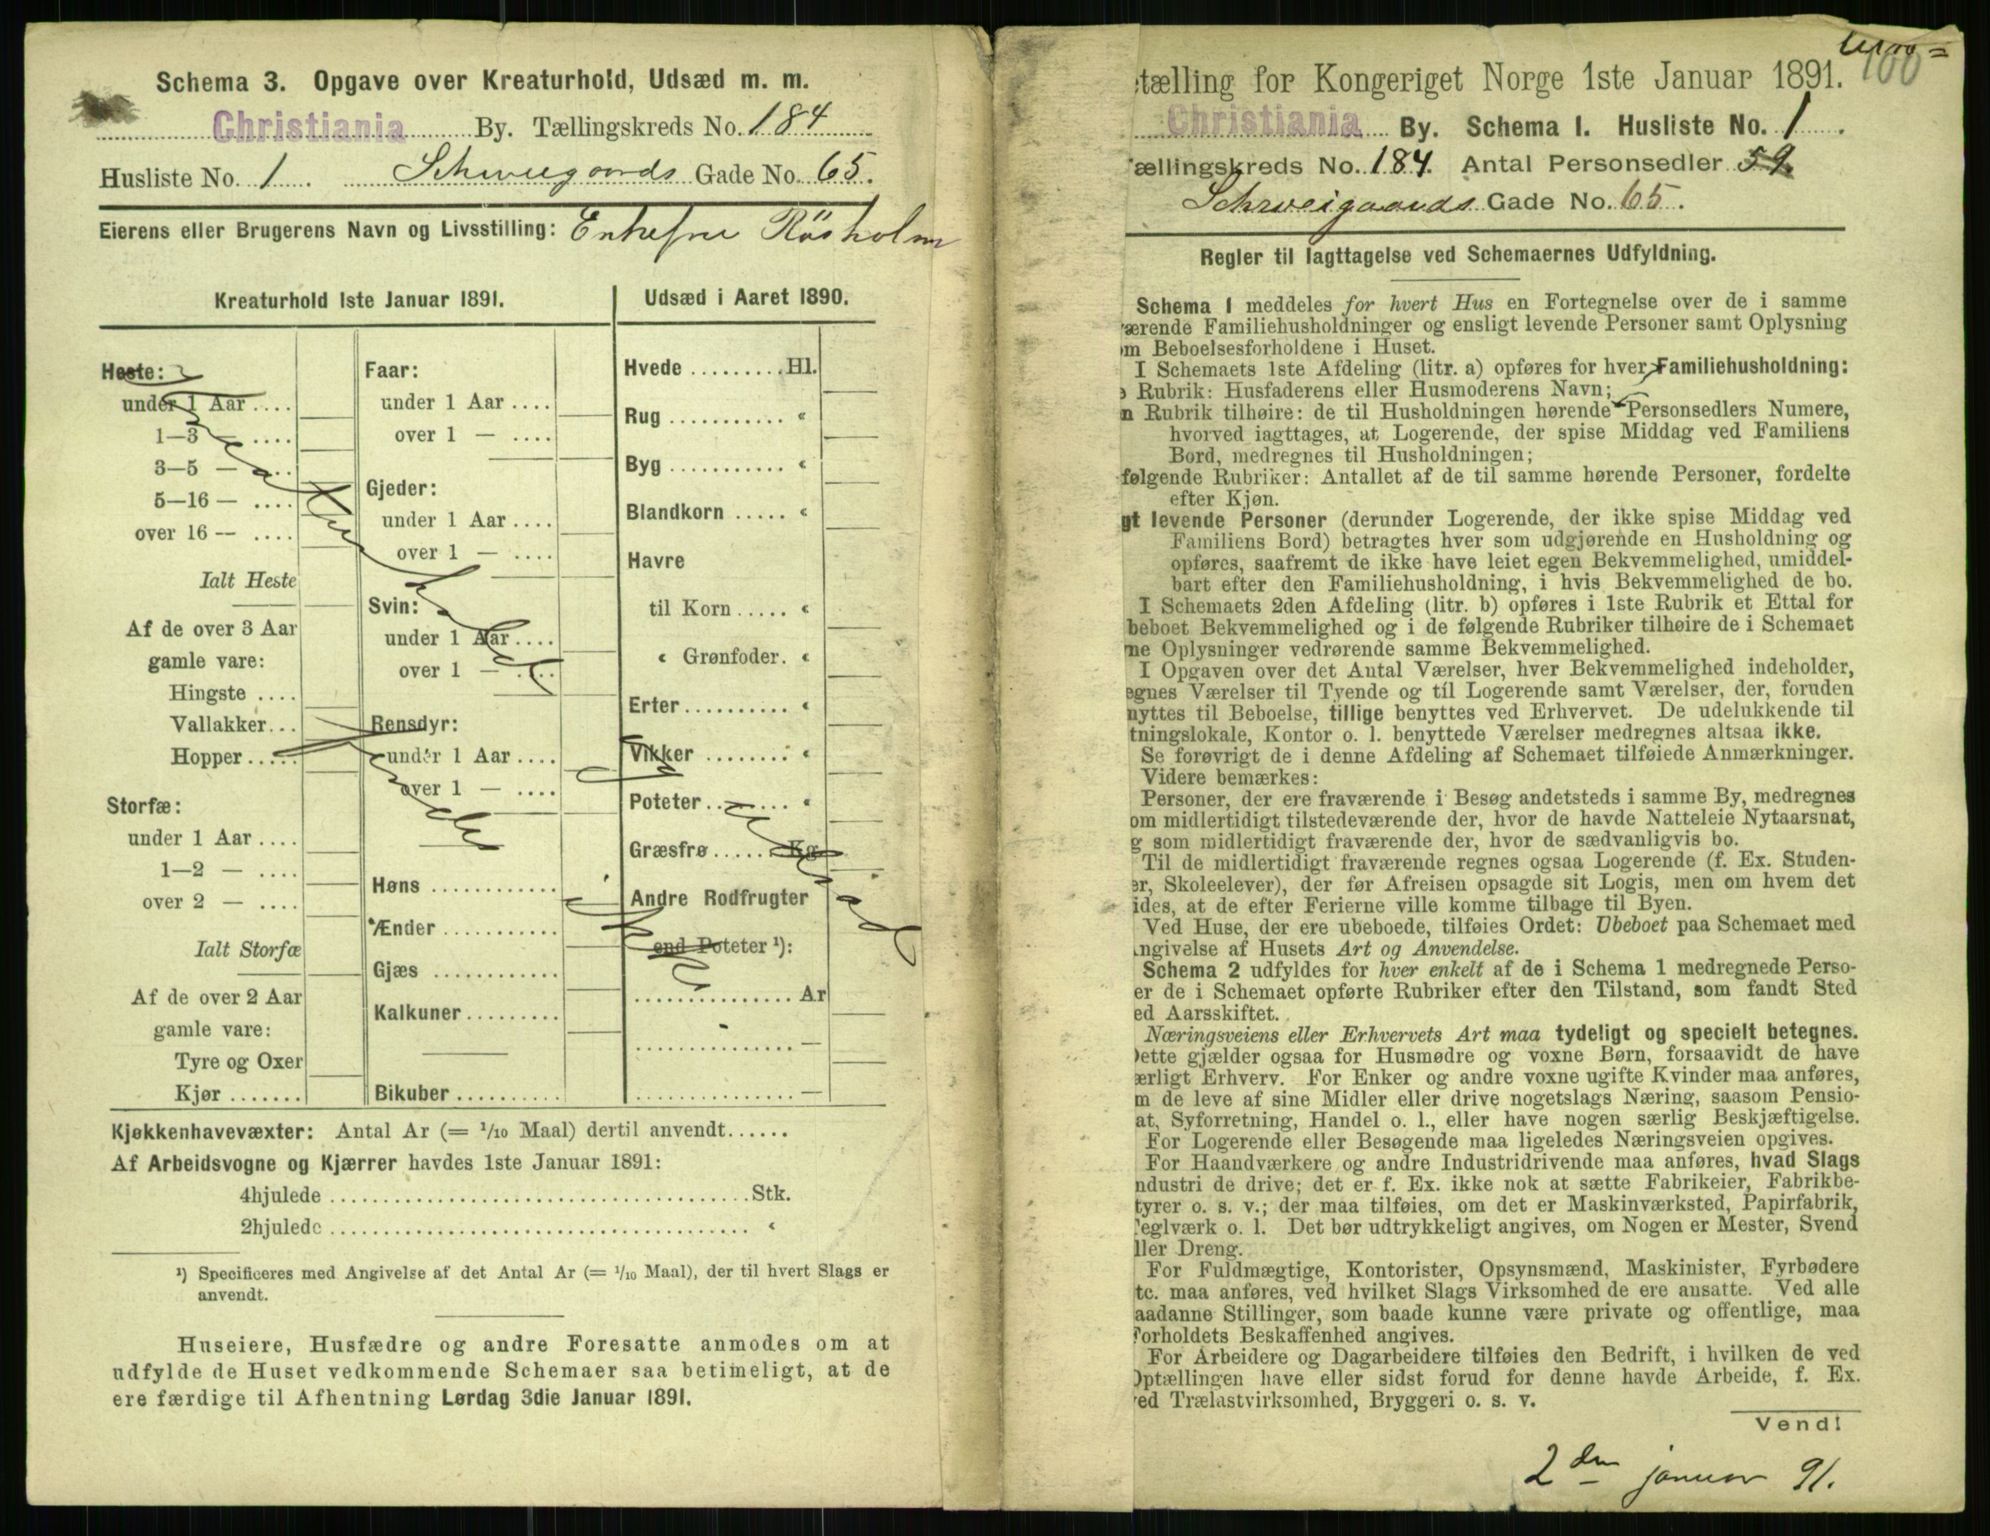 Schema 3. Opgave over Kreaturhold, Udsæd m. m.
Christiania By. Tællingskreds No. 184
Husliste No. 1 Schweigaards Gade No. 65.
Eierens eller Brugerens Navn og Livsstilling: Enkefru Rösholm
Kreaturhold 1ste Januar 1891.
Heste:
under 1 Aar ....
1—3 — ....
3—5 — ....
5—16 — ....
over 16 — ....
Ialt Heste
Af de over 3 Aar
gamle vare:
Hingste ....
Vallakker...
Hopper .....
Storfæ:
under 1 Aar ....
1—2 — ....
over 2 — ....
Ialt Storfæ
Af de over 2 Aar
gamle vare:
Tyre og Oxer
Kjør .......
Faar:
under 1 Aar ....
over 1 — ....
Gjeder:
under 1 Aar ....
over 1 — ....
Svin:
under 1 Aar ....
over 1 — ....
Rensdyr:
under 1 Aar ....
over 1 — ....
Høns ............
Ænder ...........
Gjæs ............
Kalkuner.........
Bikuber ..........
Udsæd i Aaret 1890.
Hvede .........Hl.
Rug ........... «
Byg ........... «
Blandkorn ..... «
Havre
til Korn ..... «
« Grønfoder. «
Erter.......... «
Vikker ........ «
Poteter........ «
Græsfrø...... Kg
Andre Rodfrugter
end Poteter ¹):
............... Ar
............... —
............... —
Kjøkkenhavevæxter: Antal Ar (= 1/10 Maal) dertil anvendt......
Af Arbeidsvogne og Kjærrer havdes 1ste Januar 1891:
4hjulede ........................................ Stk.
2hjulede ........................................ «
¹) Specificeres med Angivelse af det Antal Ar (= 1/10 Maal), der til hvert Slags er
anvendt.
Huseiere, Husfædre og andre Foresatte anmodes om at
udfylde de Huset vedkommende Schemaer saa betimeligt, at de
ere færdige til Afhentning Lørdag 3die Januar 1891.
100
tælling for Kongeriget Norge 1ste Januar 1891.
Christiania By. Schema I. Husliste No. 1
Tællingskreds No. 184. Antal Personsedler 59
Schweigaards Gade No. 65.
Regler til Iagttagelse ved Schemaernes Udfyldning.
Schema 1 meddeles for hvert Hus en Fortegnelse over de i samme
værende Familiehusholdninger og ensligt levende Personer samt Oplysning
om Beboelsesforholdene i Huset.
I Schemaets 1ste Afdeling (litr. a) opføres for hver Familiehusholdning:
Rubrik: Husfaderens eller Husmoderens Navn;
n Rubrik tilhøire: de til Husholdningen hørende Personsedlers Numere,
hvorved iagttages, at Logerende, der spise Middag ved Familiens
Bord, medregnes til Husholdningen;
følgende Rubriker: Antallet af de til samme hørende Personer, fordelte
efter Kjøn.
gt levende Personer (derunder Logerende, der ikke spise Middag ved
Familiens Bord) betragtes hver som udgjørende en Husholdning og
opføres, saafremt de ikke have leiet egen Bekvemmelighed, umiddel-
bart efter den Familiehusholdning, i hvis Bekvemmelighed de bo.
I Schemaets 2den Afdeling (litr. b) opføres i 1ste Rubrik et Ettal for
beboet Bekvemmelighed og i de følgende Rubriker tilhøire de i Schemaet
ne Oplysninger vedrørende samme Bekvemmelighed.
I Opgaven over det Antal Værelser, hver Bekvemmelighed indeholder,
egnes Værelser til Tyende og til Logerende samt Værelser, der, foruden
nyttes til Beboelse, tillige benyttes ved Erhvervet. De udelukkende til
tningslokale, Kontor o. l. benyttede Værelser medregnes altsaa ikke.
Se forøvrigt de i denne Afdeling af Schemaet tilføiede Anmærkninger.
Videre bemærkes:
Personer, der ere fraværende i Besøg andetsteds i samme By, medregnes
om midlertidigt tilstedeværende der, hvor de havde Natteleie Nytaarsnat,
g som midlertidigt fraværende der, hvor de sædvanligvis bo.
Til de midlertidigt fraværende regnes ogsaa Logerende (f. Ex. Studen-
er, Skoleelever), der før Afreisen opsagde sit Logis, men om hvem det
ides, at de efter Ferierne ville komme tilbage til Byen.
Ved Huse, der ere ubeboede, tilføies Ordet: Ubeboet paa Schemaet med
ngivelse af Husets Art og Anvendelse.
Schema 2 udfyldes for hver enkelt af de i Schema 1 medregnede Perso-
er de i Schemaet opførte Rubriker efter den Tilstand, som fandt Sted
ed Aarsskiftet.
Næringsveiens eller Erhvervets Art maa tydeligt og specielt betegnes.
Dette gjælder ogsaa for Husmødre og voxne Børn, forsaavidt de have
ærligt Erhverv. For Enker og andre voxne ugifte Kvinder maa anføres,
m de leve af sine Midler eller drive nogetslags Næring, saasom Pensio-
at, Syforretning, Handel o. l., eller have nogen særlig Beskjæftigelse.
For Logerende eller Besøgende maa ligeledes Næringsveien opgives.
For Haandværkere og andre Industridrivende maa anføres, hvad Slags
ndustri de drive; det er f. Ex. ikke nok at sætte Fabrikeier, Fabrikbe-
tyrer o. s. v.; der maa tilføies, om det er Maskinværksted, Papirfabrik,
Teglværk o. l. Det bør udtrykkeligt angives, om Nogen er Mester, Svend
ller Dreng.
For Fuldmægtige, Kontorister, Opsynsmænd, Maskinister, Fyrbødere
tc. maa anføres, ved hvilket Slags Virksomhed de ere ansatte. Ved alle
aadanne Stillinger, som baade kunne være private og offentlige, maa
Forholdets Beskaffenhed angives.
For Arbeidere og Dagarbeidere tilføies den Bedrift, i hvilken de ved
Optællingen have eller sidst forud for denne havde Arbeide, f. Ex.
ed Trælastvirksomhed, Bryggeri o. s. v.
Vend!
2den januar 91.